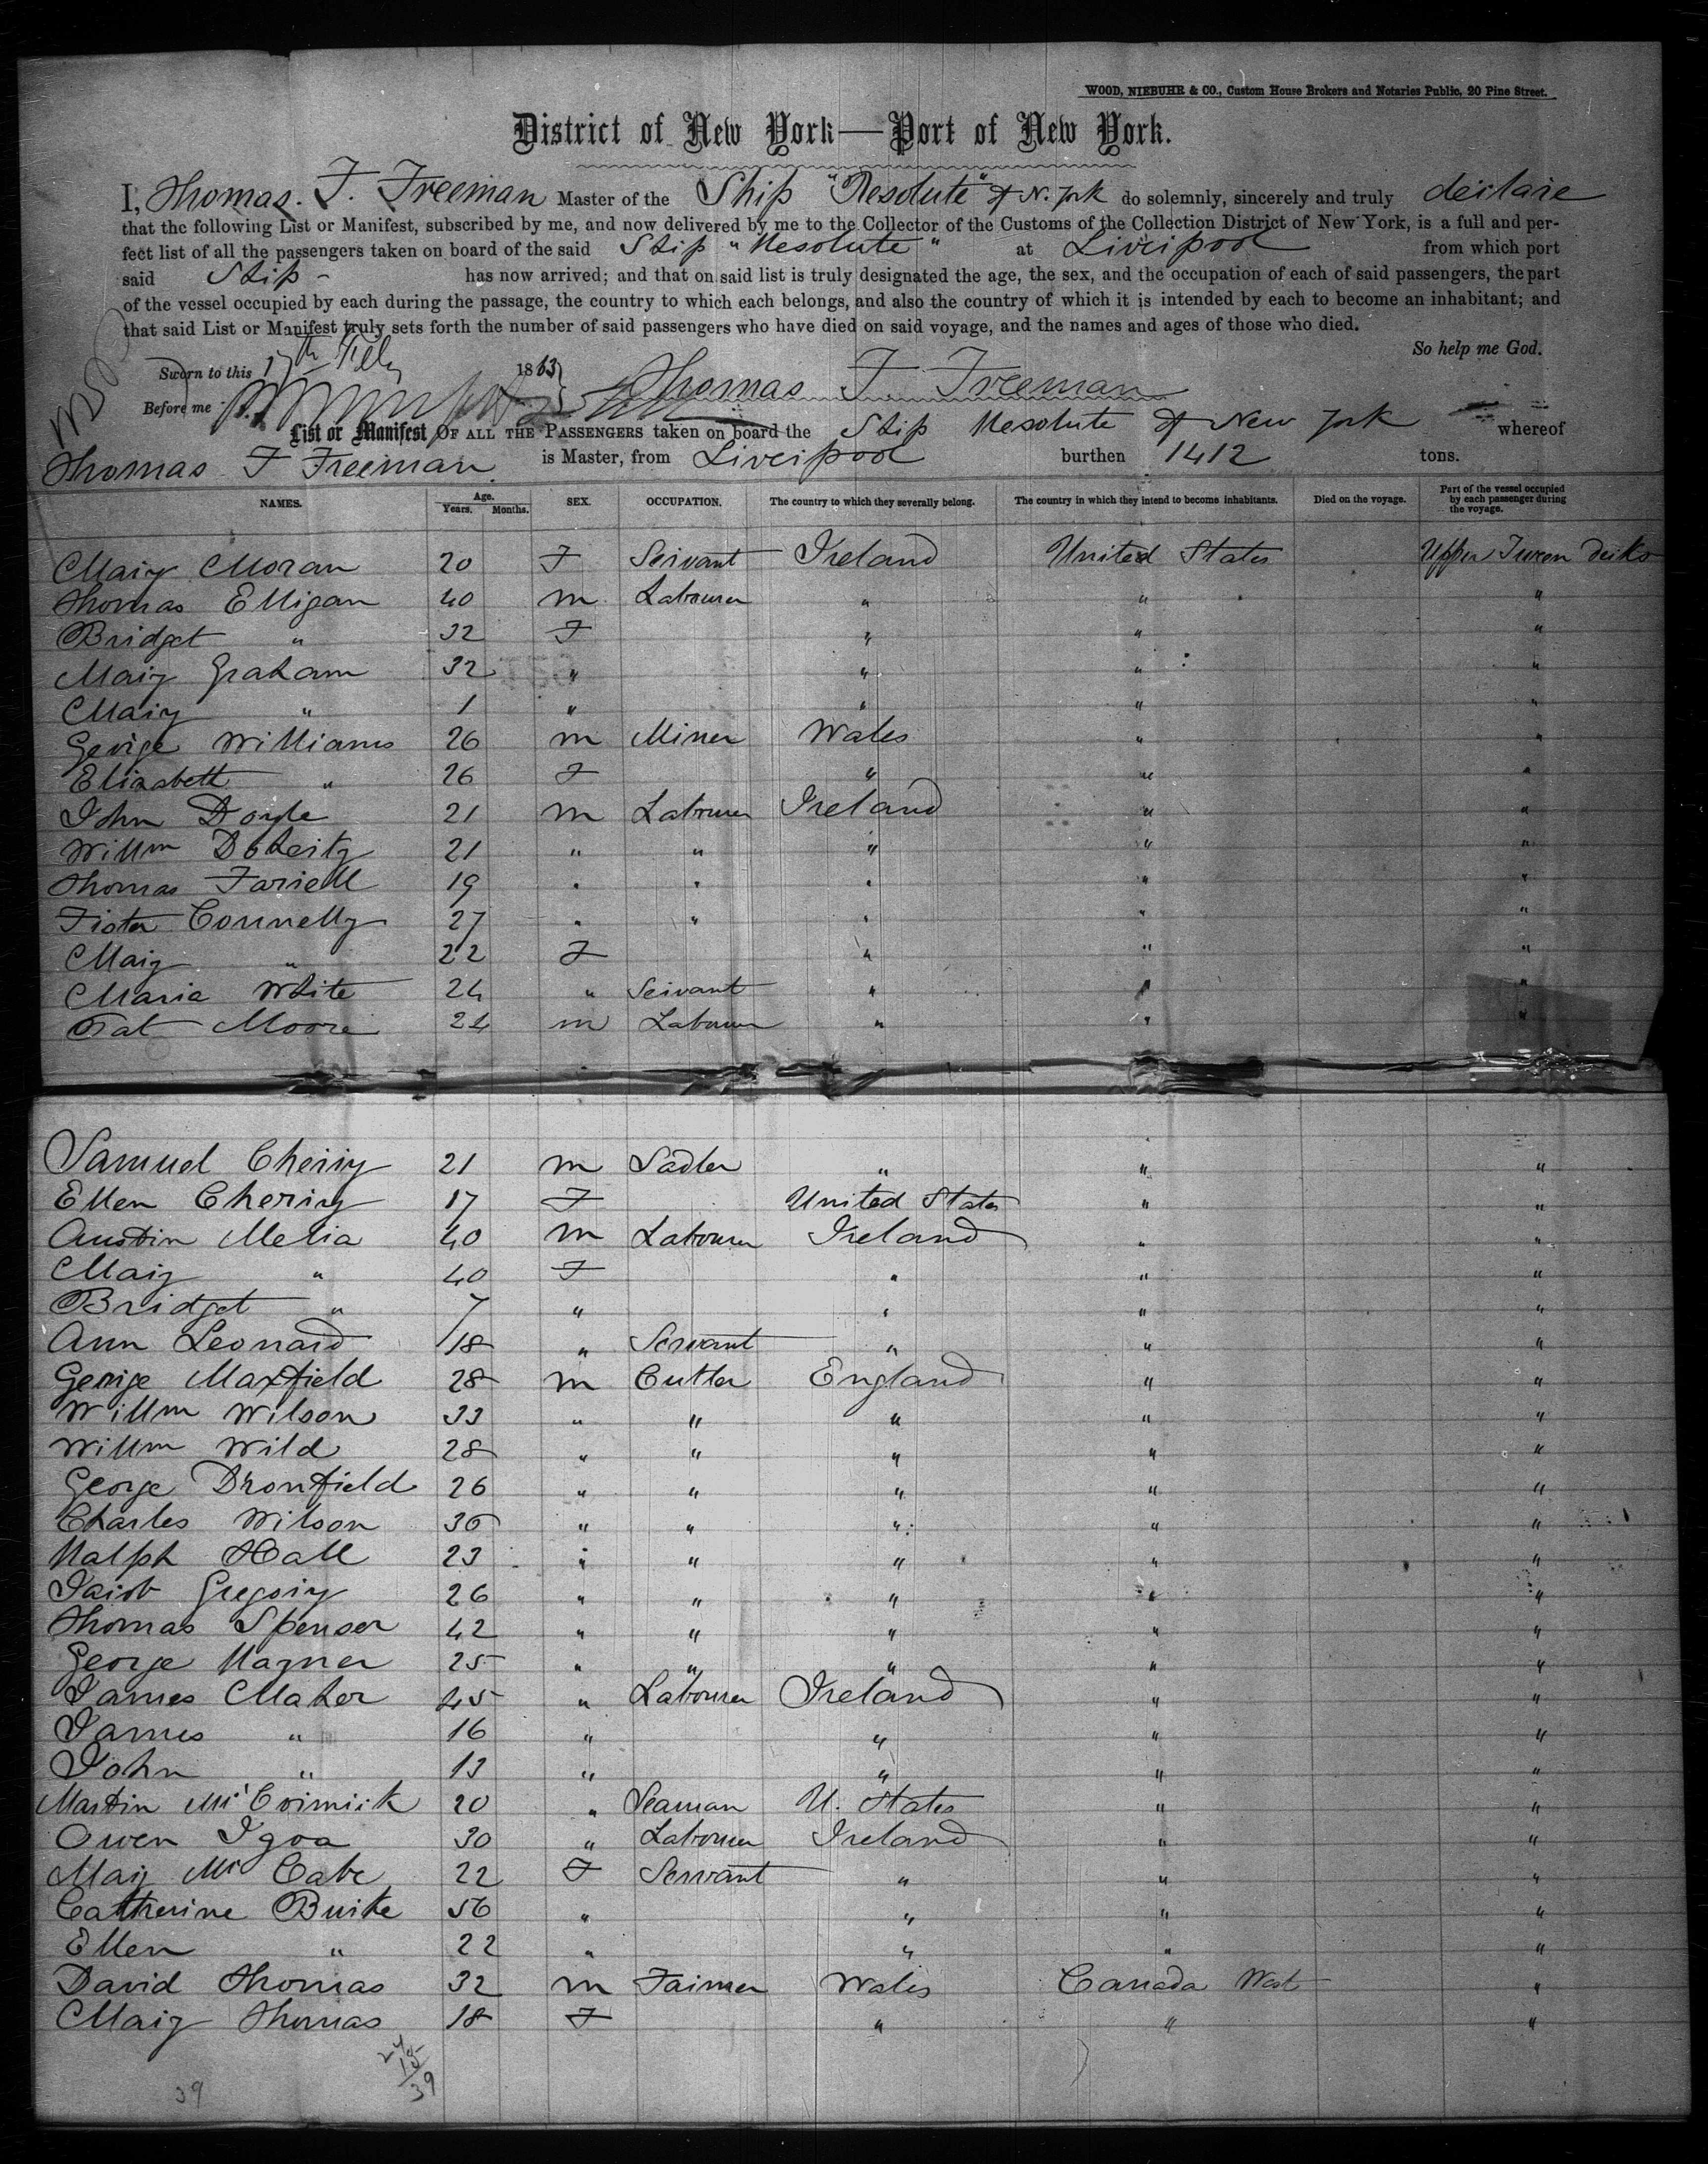 WOOD, NIEBUHR & CO., Custom House Brokers and Notaries Public, 20 Pine Street.
District of New York—Port of New York.
I, Thomas. F. Freeman Master of the Ship "Resolute" of N. York do solemnly, sincerely and truly declare
that the following List or Manifest, subscribed by me, and now delivered by me to the Collector of the Customs of the Collection District of New York, is a full and per-
fect list of all the passengers taken on board of the said Ship "Resolute" at Liverpool from which port
said Ship - has now arrived; and that on said list is truly designated the age, the sex, and the occupation of each of said passengers, the part
of the vessel occupied by each during the passage, the country to which each belongs, and also the country of which it is intended by each to become an inhabitant; and
that said List or Manifest truly sets forth the number of said passengers who have died on said voyage, and the names and ages of those who died.
So help me God.
Sworn to this 17th Feby 1863
Thomas F. Freeman
Before me
List or Manifest OF ALL THE PASSENGERS taken on board the Ship Resolute of New York whereof
Thomas F Freeman is Master, from Liverpool burthen 1412 tons.
NAMES. Age. Years. Months. SEX. OCCUPATION. The country to which they severally belong. The country in which they intend to become inhabitants. Died on the voyage. Part of the vessel occupied by each passenger during the voyage.
Mary Moran 20 F Servant Ireland United States Upper Tween Decks
Thomas Elligan 40 m Labourer " " "
Bridget " 32 F " " "
Mary Graham 32 " " " "
Mary " 1 " " " "
George Williams 26 m Miner Wales " "
Elizabeth " 26 F " " "
John Doyle 21 m Labourer Ireland " "
Willm Doherty 21 " " " " "
Thomas Farrell 19 " " " " "
Connelly 27 " " " " "
Mary " 22 F " " "
Maria White 24 " Servant " " "
Pat Moore 24 m Labourer " " "
Samuel Cherry 21 m Sadler " " "
Ellen Cherry 17 F United States " "
Austin Melia 40 m Labourer Ireland " "
Mary " 40 F " " "
Bridget " 7 " " " "
Ann Leonard 18 " Servant " " "
George Maxfield 28 m Cutler England " "
Willm Wilson 33 " " " " "
Willm Wild 28 " " " " "
George Dronfield 26 " " " " "
Charles Wilson 36 " " " " "
Ralph Hall 23 " " " " "
Jacob Gregory 26 " " " " "
Thomas Spenser 42 " " " " "
George Ragner 25 " " " " "
James Maher 45 " Labourer Ireland " "
James " 16 " " " "
John " 13 " " " "
Martin McCormick 20 " Seaman U. States " "
Owen Igoa 30 " Labourer Ireland " "
Mary Mc Cabe 22 F Servant " " "
Catherine Burke 56 " " " "
Ellen " 22 " " " "
David Thomas 32 m Farmer Wales Canada West "
Mary Thomas 18 F " " "
24
15
39
39